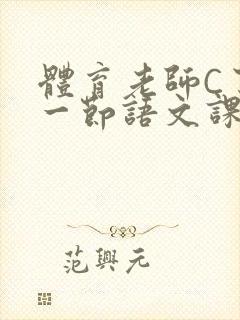 體育老師C
一節語文課
范興元